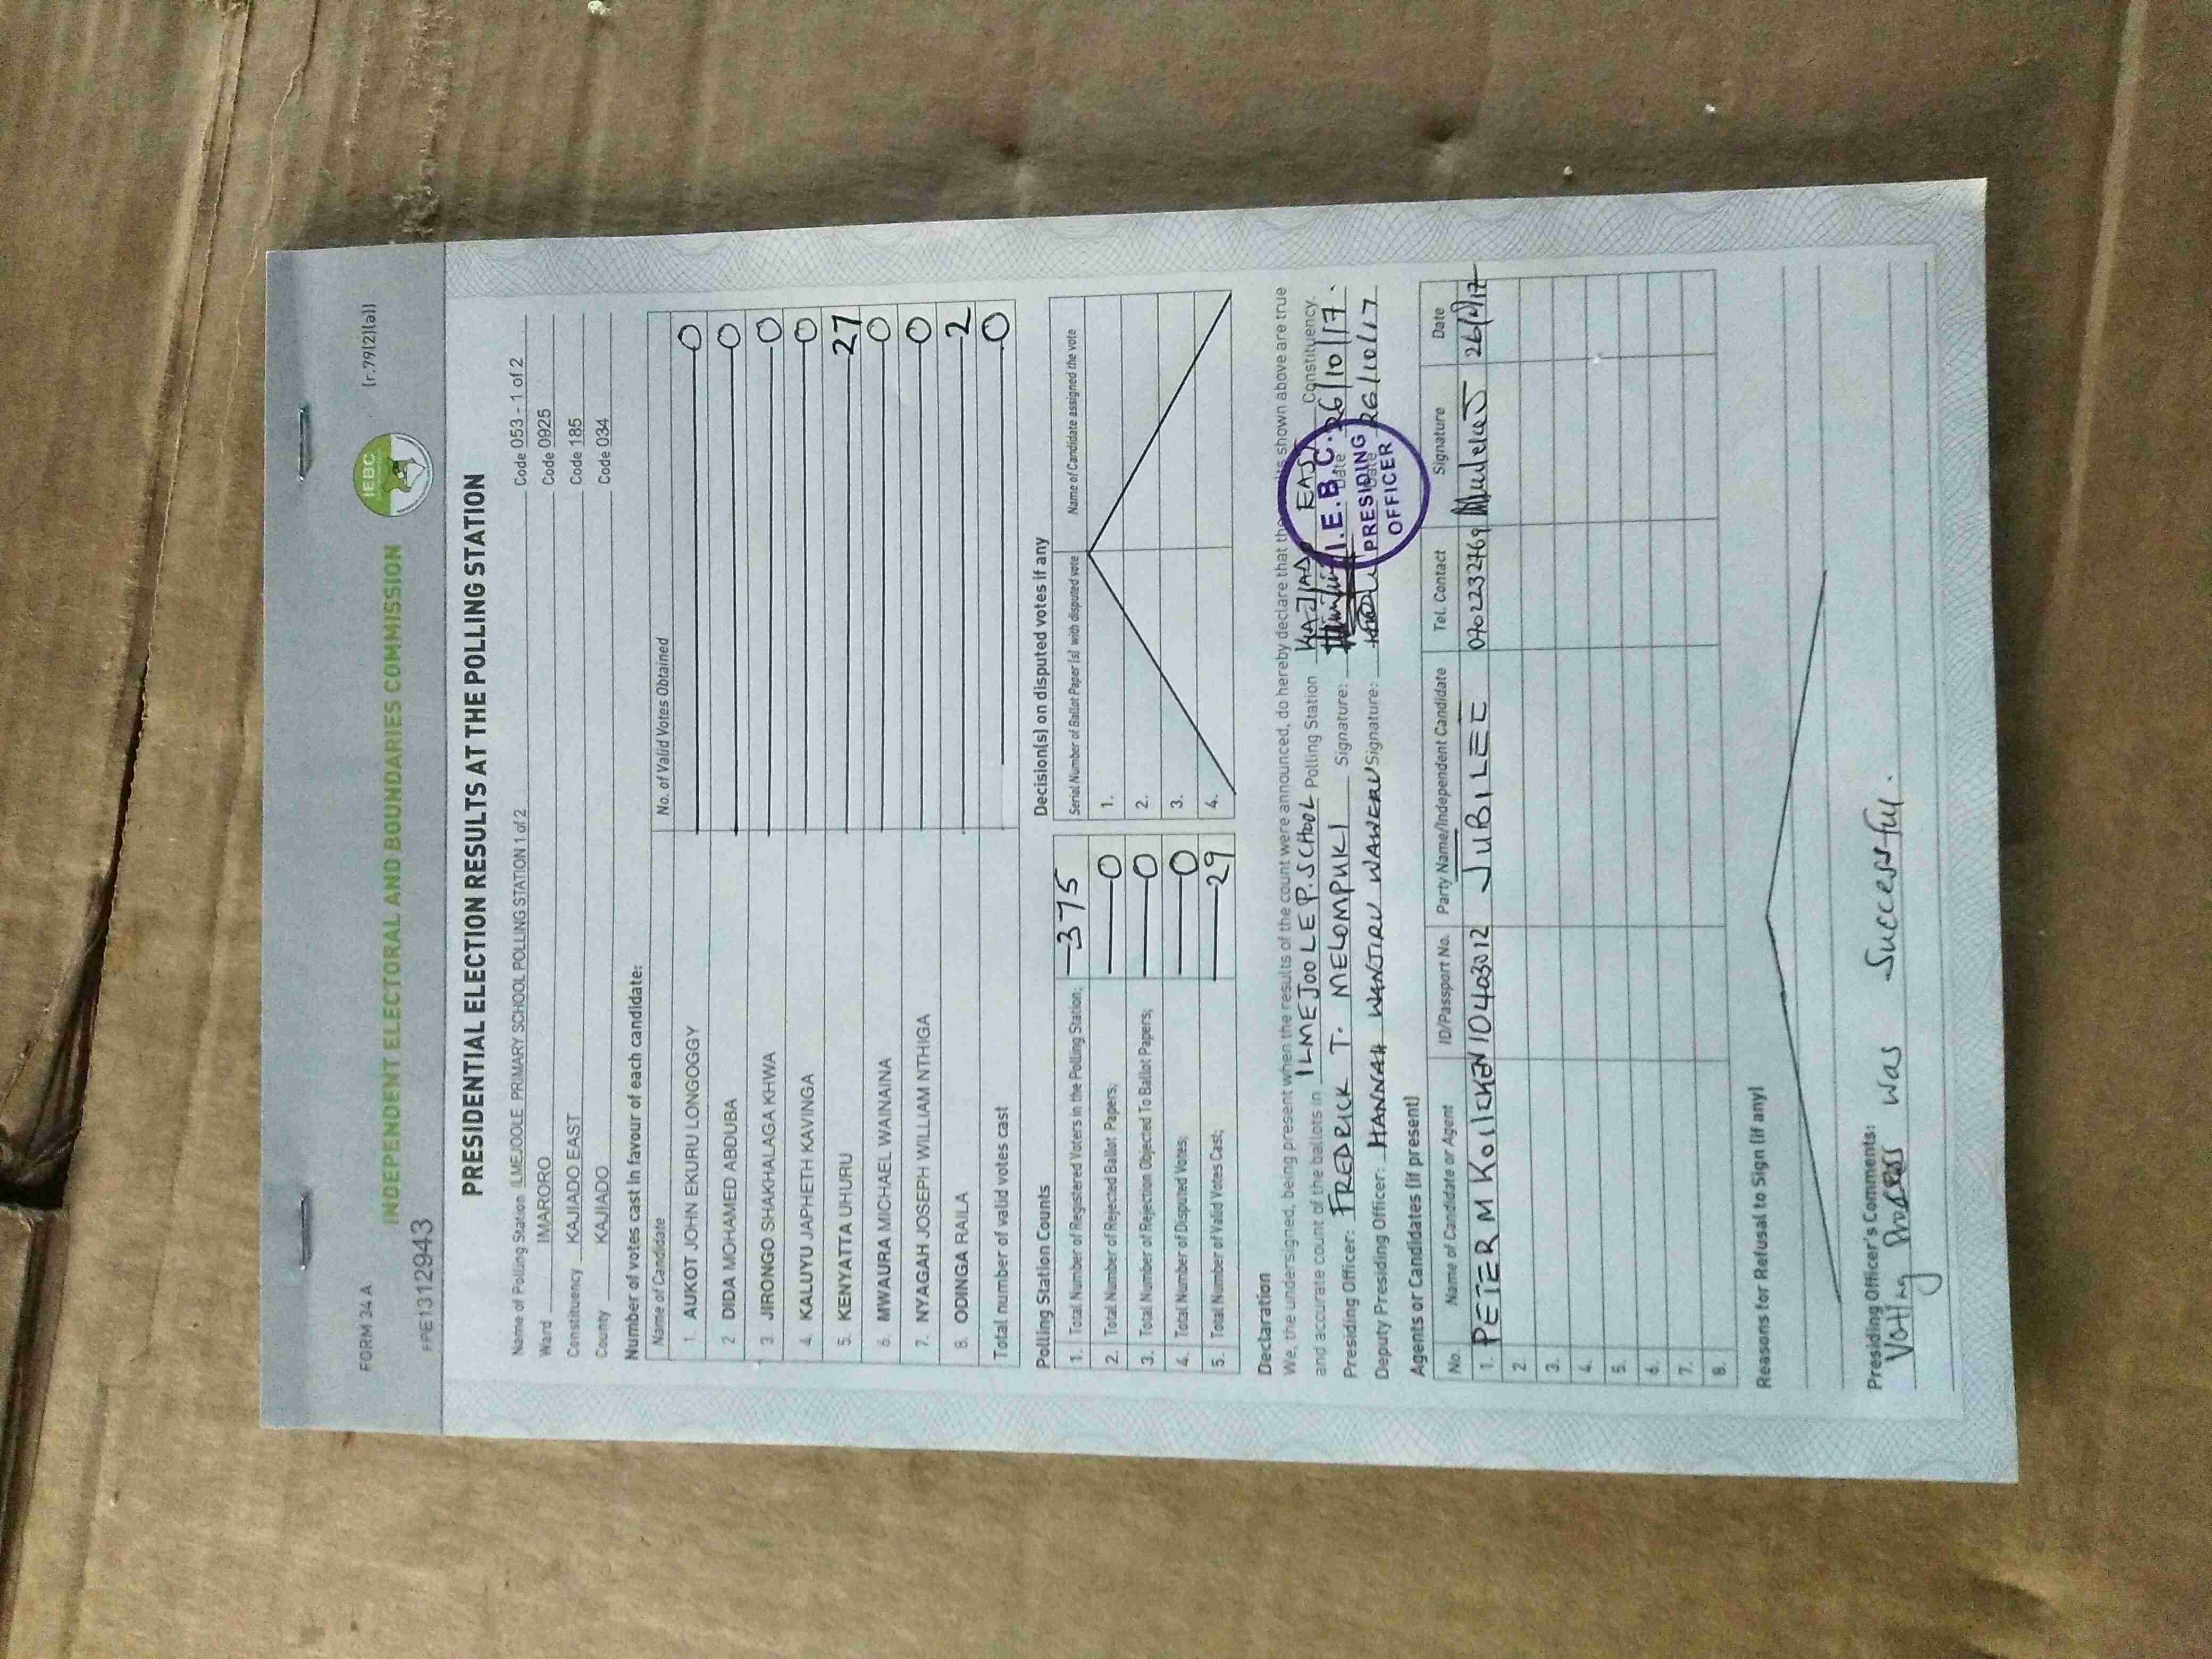 FORM 34 A
(r.79(2)(a))
INDEPENDENT ELECTORAL AND BOUNDARIES COMMISSION
IEBC
FPE1312943
PRESIDENTIAL ELECTION RESULTS AT THE POLLING STATION
Name of Polling Station ILMEJOOLE PRIMARY SCHOOL POLLING STATION 1 of 2 Code 053 - 1 of 2
Ward IMARORO Code 0925
Constituency KAJIADO EAST Code 185
County KAJIADO Code 034
Number of votes cast in favour of each candidate:
Name of Candidate No. of Valid Votes Obtained
1. AUKOT JOHN EKURU LONGOGGY 0
2 DIDA MOHAMED ABDUBA 0
3. JIRONGO SHAKHALAGA KHWA 0
4. KALUYU JAPHETH KAVINGA 0
5. KENYATTA UHURU 27
6. MWAURA MICHAEL WAINAINA 0
7. NYAGAH JOSEPH WILLIAM NTHIGA 0
8. ODINGA RAILA 2
Total number of valid votes cast 0
Polling Station Counts
1. Total Number of Registered Voters in the Polling Station; 375
2. Total Number of Rejected Ballot Papers; 0
3. Total Number of Rejection Objected To Ballot Papers; 0
4. Total Number of Disputed Votes; 0
5. Total Number of Valid Votes Cast; 29
Decision(s) on disputed votes if any
Serial Number of Ballot Paper (s) with disputed vote Name of Candidate assigned the vote
1.
2.
3.
4.
Declaration
We, the undersigned, being present when the results of the count were announced, do hereby declare that the results shown above are true
and accurate count of the ballots in ILMEJOOLE P. SCHOOL Polling Station KAJIADO EAST Constituency.
Presiding Officer: FREDRICK T. MELOMPUKI Signature: Date 26/10/17.
Deputy Presiding Officer: HANNAH WANJIRU WAWERU Signature: Date 26/10/17
I.E.B.C.
PRESIDING
OFFICER
Agents or Candidates (if present)
No. Name of Candidate or Agent ID/Passport No. Party Name/Independent Candidate Tel. Contact Signature Date
1. PETER M 10403012 JUBILEE 0702232769 26/10/17
2
3.
4.
5.
6.
7.
8.
Reasons for Refusal to Sign (if any)
Presiding Officer's Comments:
Voting Process was Successful.